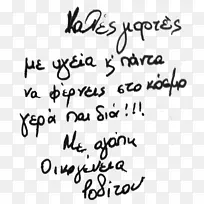 Καλές γιορτές
με υγεία κ' πάντα
να φέρνεις στο κόσμο
γερά παιδιά!!!
Με αγάπη
Οικογένεια